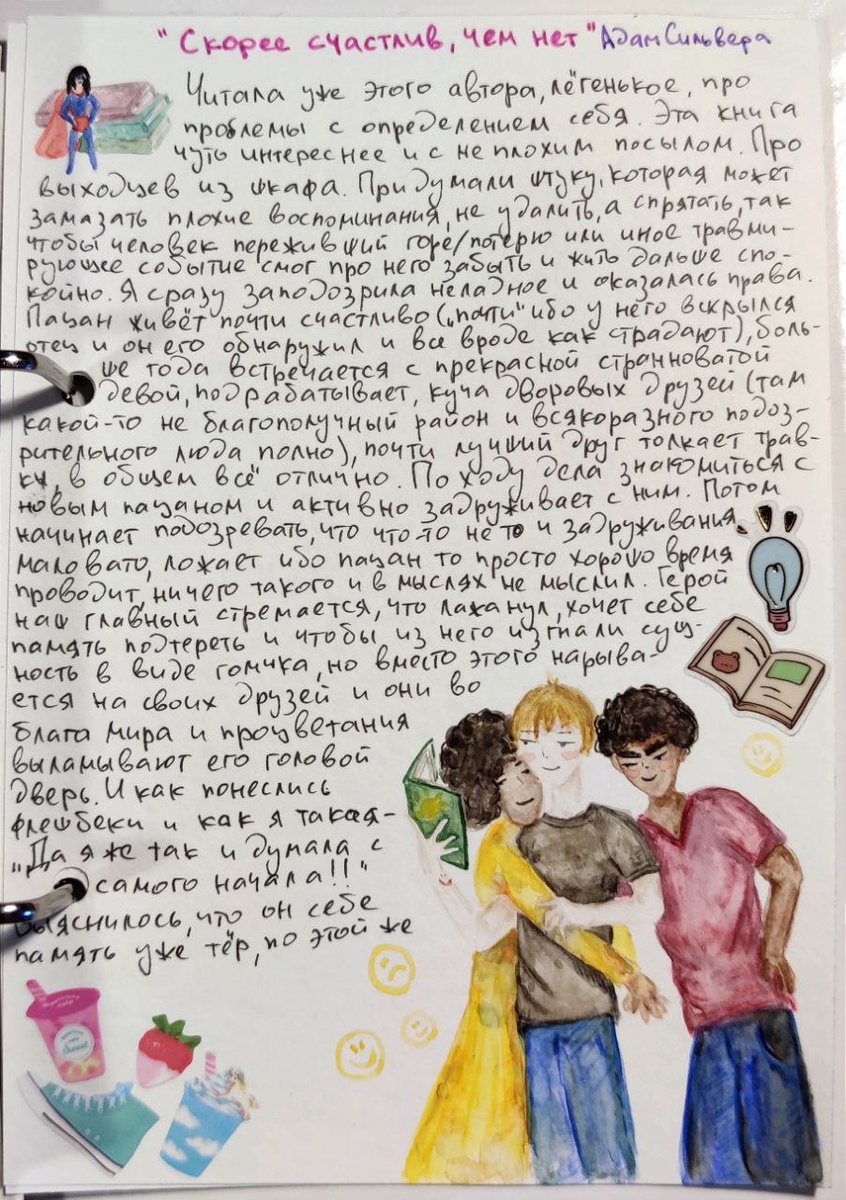 "Скорее счастлив, чем нет" Адам Сильвера
Читала уже этого автора, лёгенькое, про
проблемы с определением себя. Эта книга
чуть интереснее и с не плохим посылом. Про
выходцев из шкафа. Придумали штуку, которая может
замазать плохие воспоминания, не удалить, а спрятать, так
чтобы человек переживший горе/потерю или иное травми-
рующее событие смог про него забыть и жить дальше спо-
койно. Я сразу заподозрила неладное и оказалась права.
Пацан живёт почти счастливо („почти" ибо у него вскрылся
отец и он его обнаружил и все вроде как страдают), боль-
ше года встречается с прекрасной странноватой
девой, подрабатывает, куча дворовых друзей (там
какой-то не благополучный район и всякоразного подоз-
рительного люда полно), почти лучший друг толкает трав-
ку, в общем всё отлично. По ходу дела знакомиться с
новым пацаном и активно задруживает с ним. Потом
начинает подозревать, что что-то не то и задруживания
маловато, ложает ибо пацан то просто хорошо время
проводит, ничего такого и в мыслях не мыслил. Герой
наш главный стремается, что лажанул, хочет себе
память подтереть и чтобы из него изгнали сущ-
ность в виде гомика, но вместо этого нарыва-
ется на своих друзей и они во
блага мира и процветания
выламывают его головой
дверь. И как понеслись
флешбеки и как я такая-
„Да я же так и думала с
самого начала!!"
Выяснилось, что он себе
память уже тёр, по этой же
Sweet